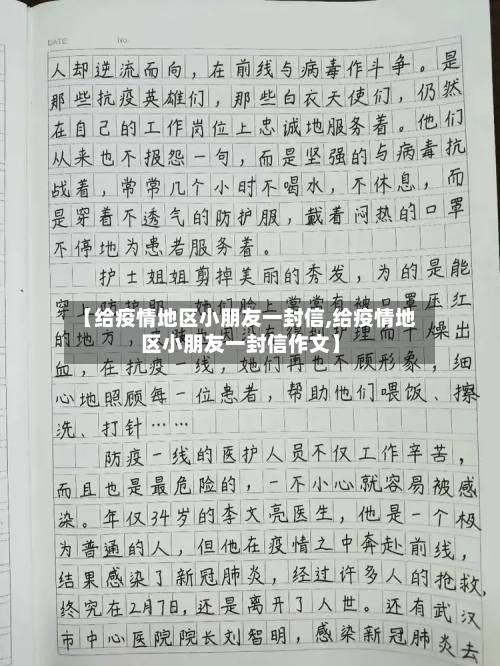 DATE: No.
人却逆流而向，在前线与病毒作斗争。是
那些抗疫英雄们，那些白衣天使们，仍然
在自己的工作岗位上忠诚地服务着。他们
从来也不报怨一句，而是坚强的与病毒抗
战着，常常几个小时不喝水，不休息，而
是穿着不透气的防护服，戴着闷热的口罩
不停地为患者服务着。
护士姐姐剪掉美丽的秀发，为的是能
【给疫情地区小朋友一封信,给疫情地
区小朋友一封信作文】
血，在抗疫一线，她们再也不顾形象，细
心地照顾每一位患者，帮助他们喂饭、擦
洗、打针……
防疫一线的医护人员不仅工作辛苦，
而且也是最危险的，一不小心就容易被感
染。年仅34岁的李文亮医生，他是一个极
为普通的人，但他在疫情之中奔赴前线，
结果感染了新冠肺炎，经过许多人的抢救，
终究在2月7日，还是离开了人世。还有武汉
市中心医院院长刘智明，感染新冠肺炎去